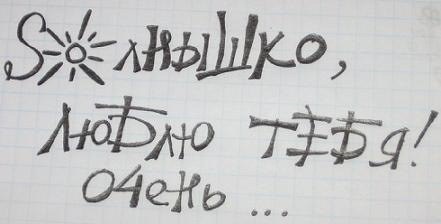 SОЛНЫШКО,
ЛЮБЛЮ ТЕБЯ!
ОЧЕНЬ ...